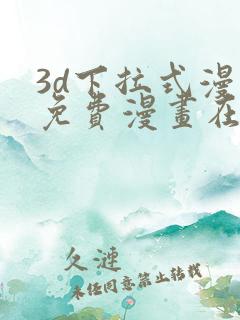 3d下拉式漫
免費漫畫在
久漣
未经同意禁止转载